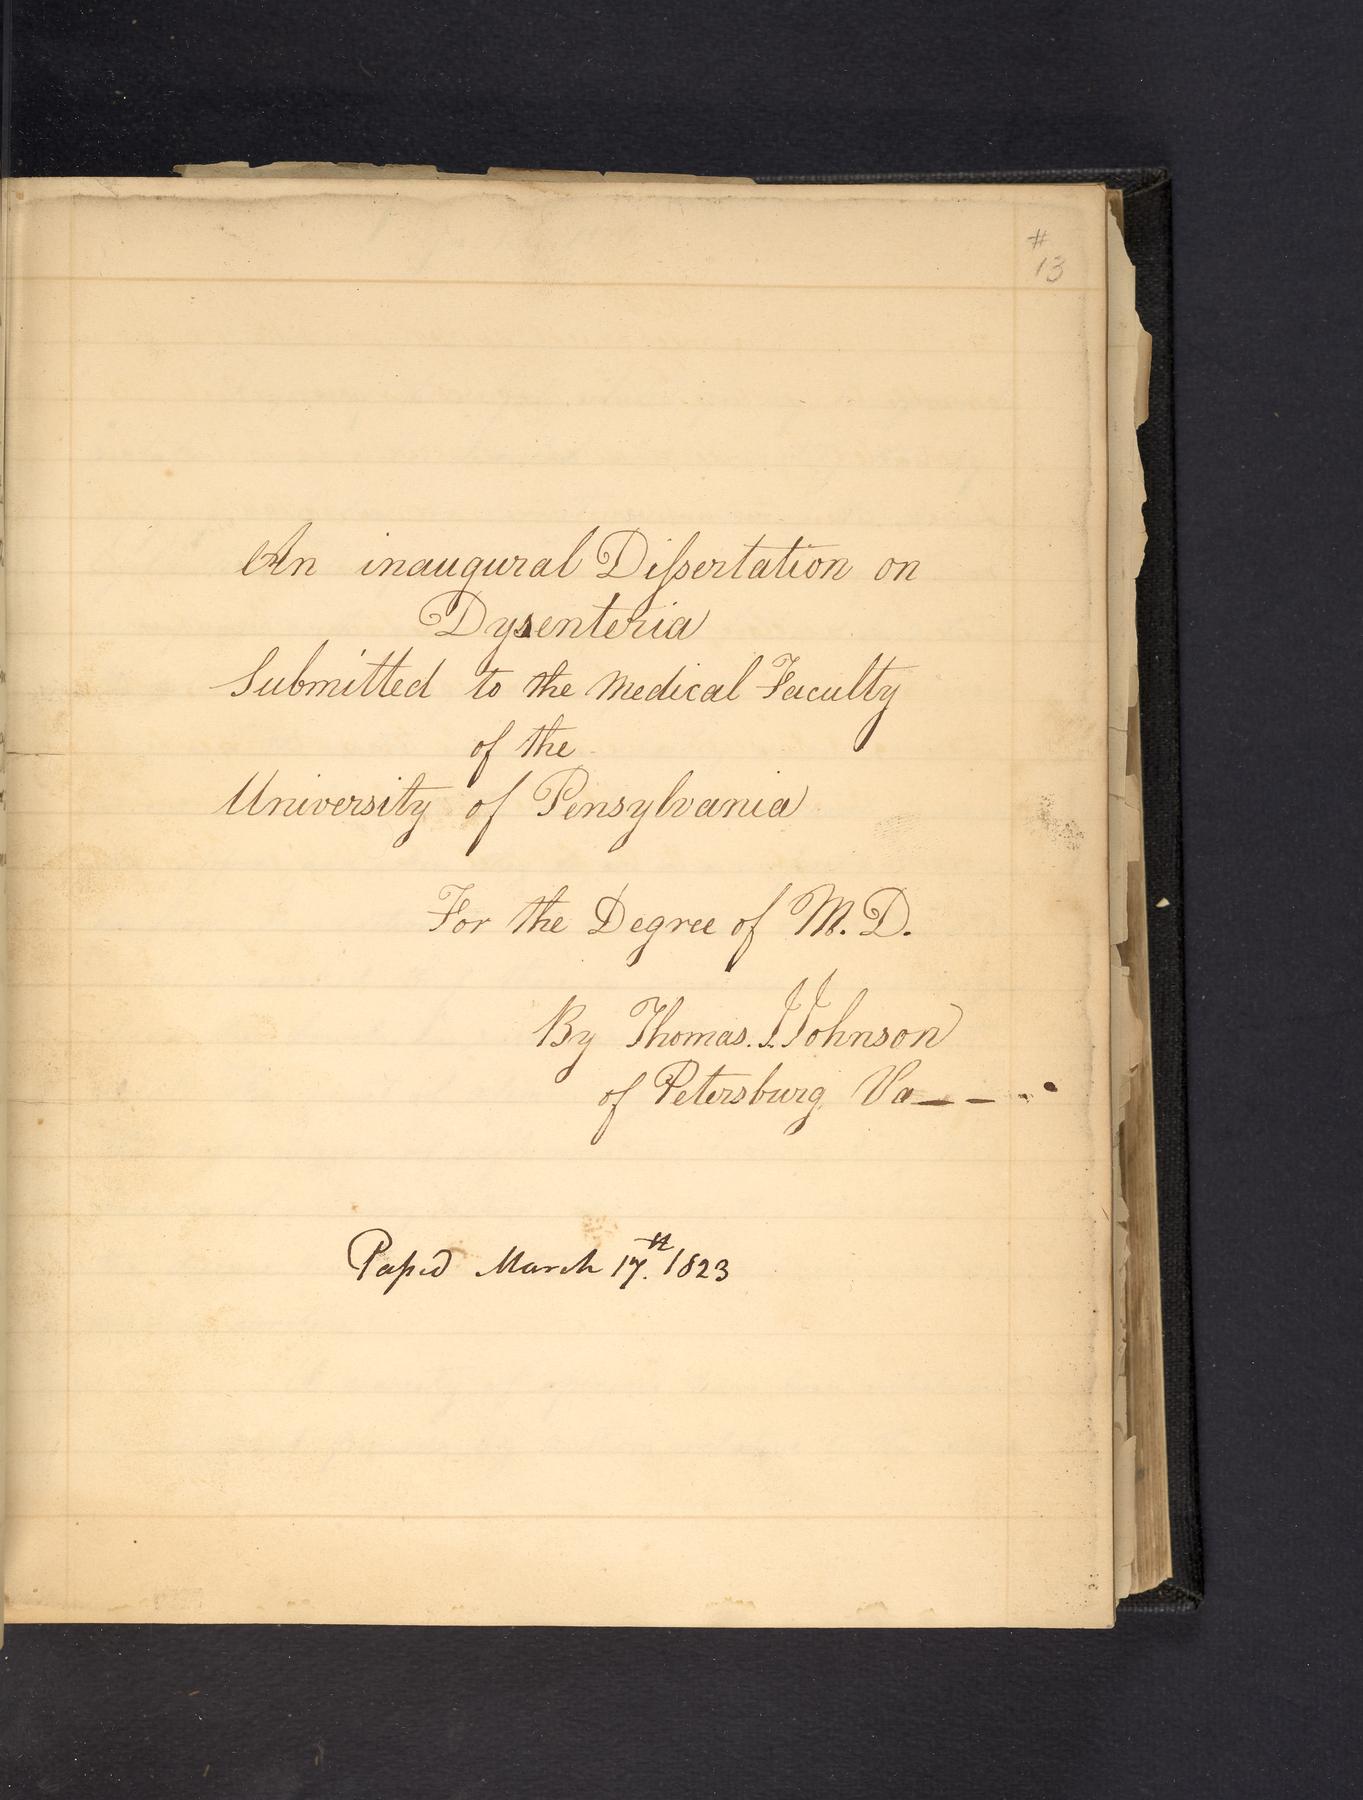 #
13
An inaugural Dißertation on
Dysenteria
Submitted to the Medical Faculty
of the
University of Pensylvania
For the Degree of M. D.
By Thomas. J. Johnson
of Petersburg Va _ _ - .
Paßed March 17.th 1823